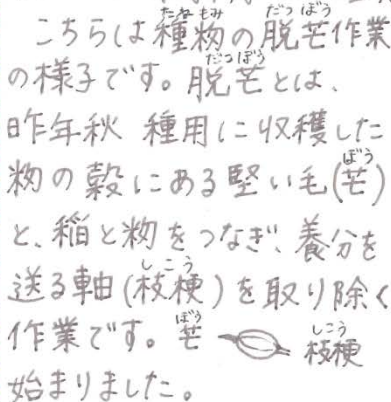 こちらは種籾の脱芒作業
の様子です。脱芒とは、
昨年秋 種用に収穫した
籾の穀にある堅い毛(芒)
と、稲と籾をつなぎ、養分を
送る軸(枝梗)を取り除く
作業です。芒 枝梗
始まりました。